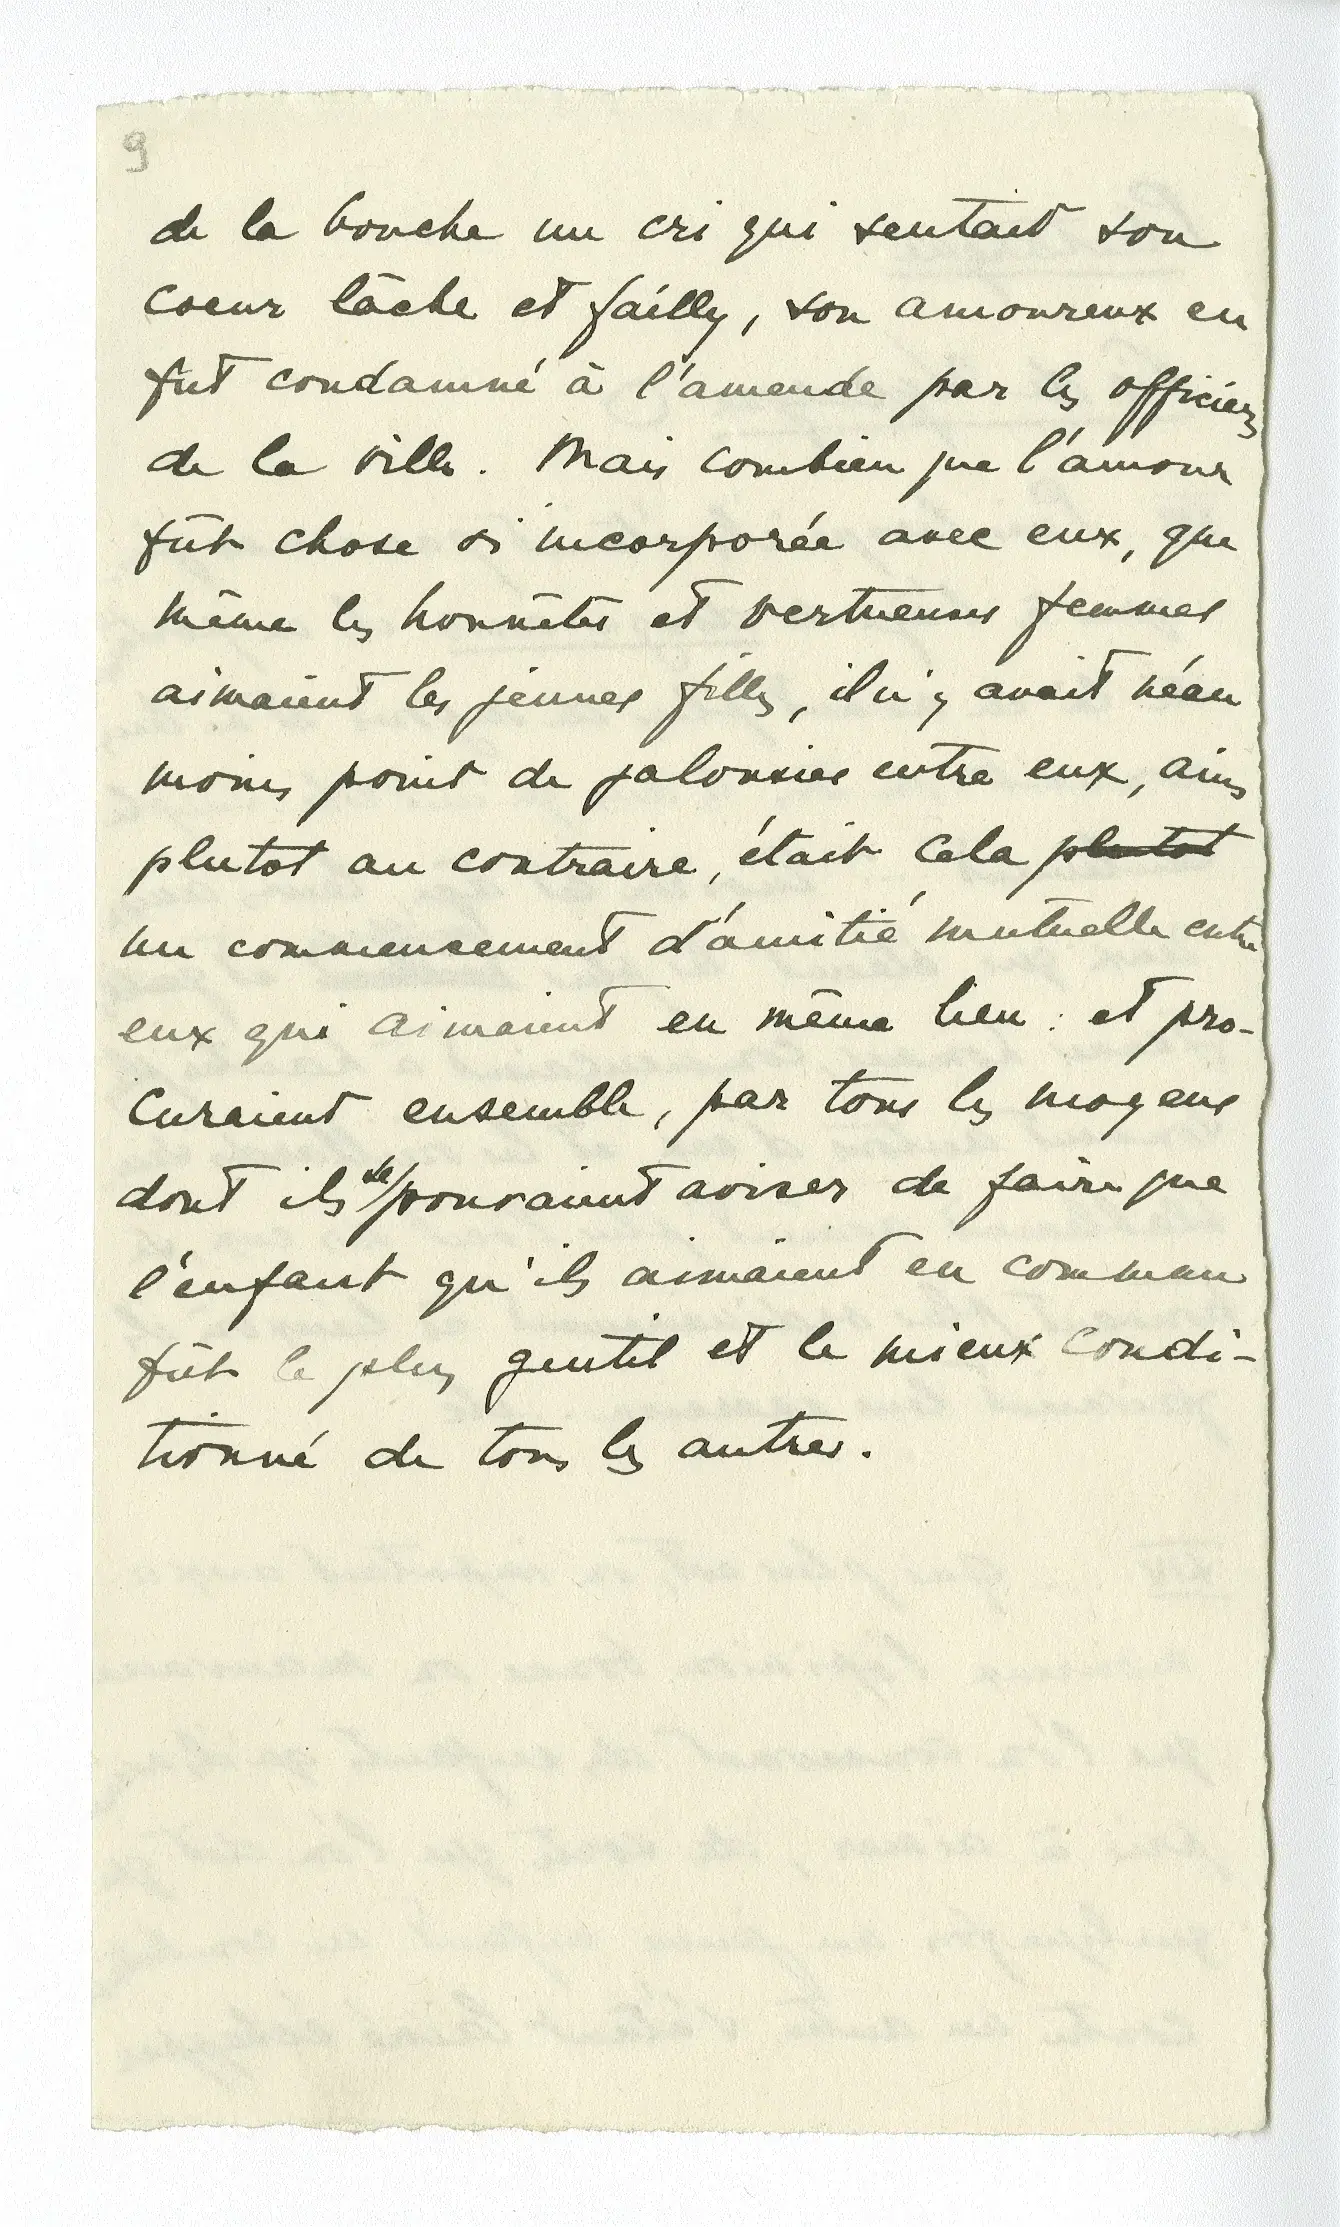 9
de la bouche un cri qui sentait son
coeur lâche et failly, son amoureux en
fut condamné à l'amende par les officiers
de la ville. Mais combien que l'amour
fût chose si incorporée avec eux, que
même les honnêtes et vertueuses femmes
aimaient les jeunes filles, il n'y avait néan
moins point de jalousies entre eux, ains
plutot au contraire, était cela plutot
un commensement d'amitié mutuelle entre
eux qui aimaient en même lieu : et pro-
curaient ensemble, par tous les moyens
dont ils se/pouvaient aviser de faire que
l'enfant qu'ils aimaient en commun
fût le plus gentil et le mieux condi-
tionné de tous les autres.